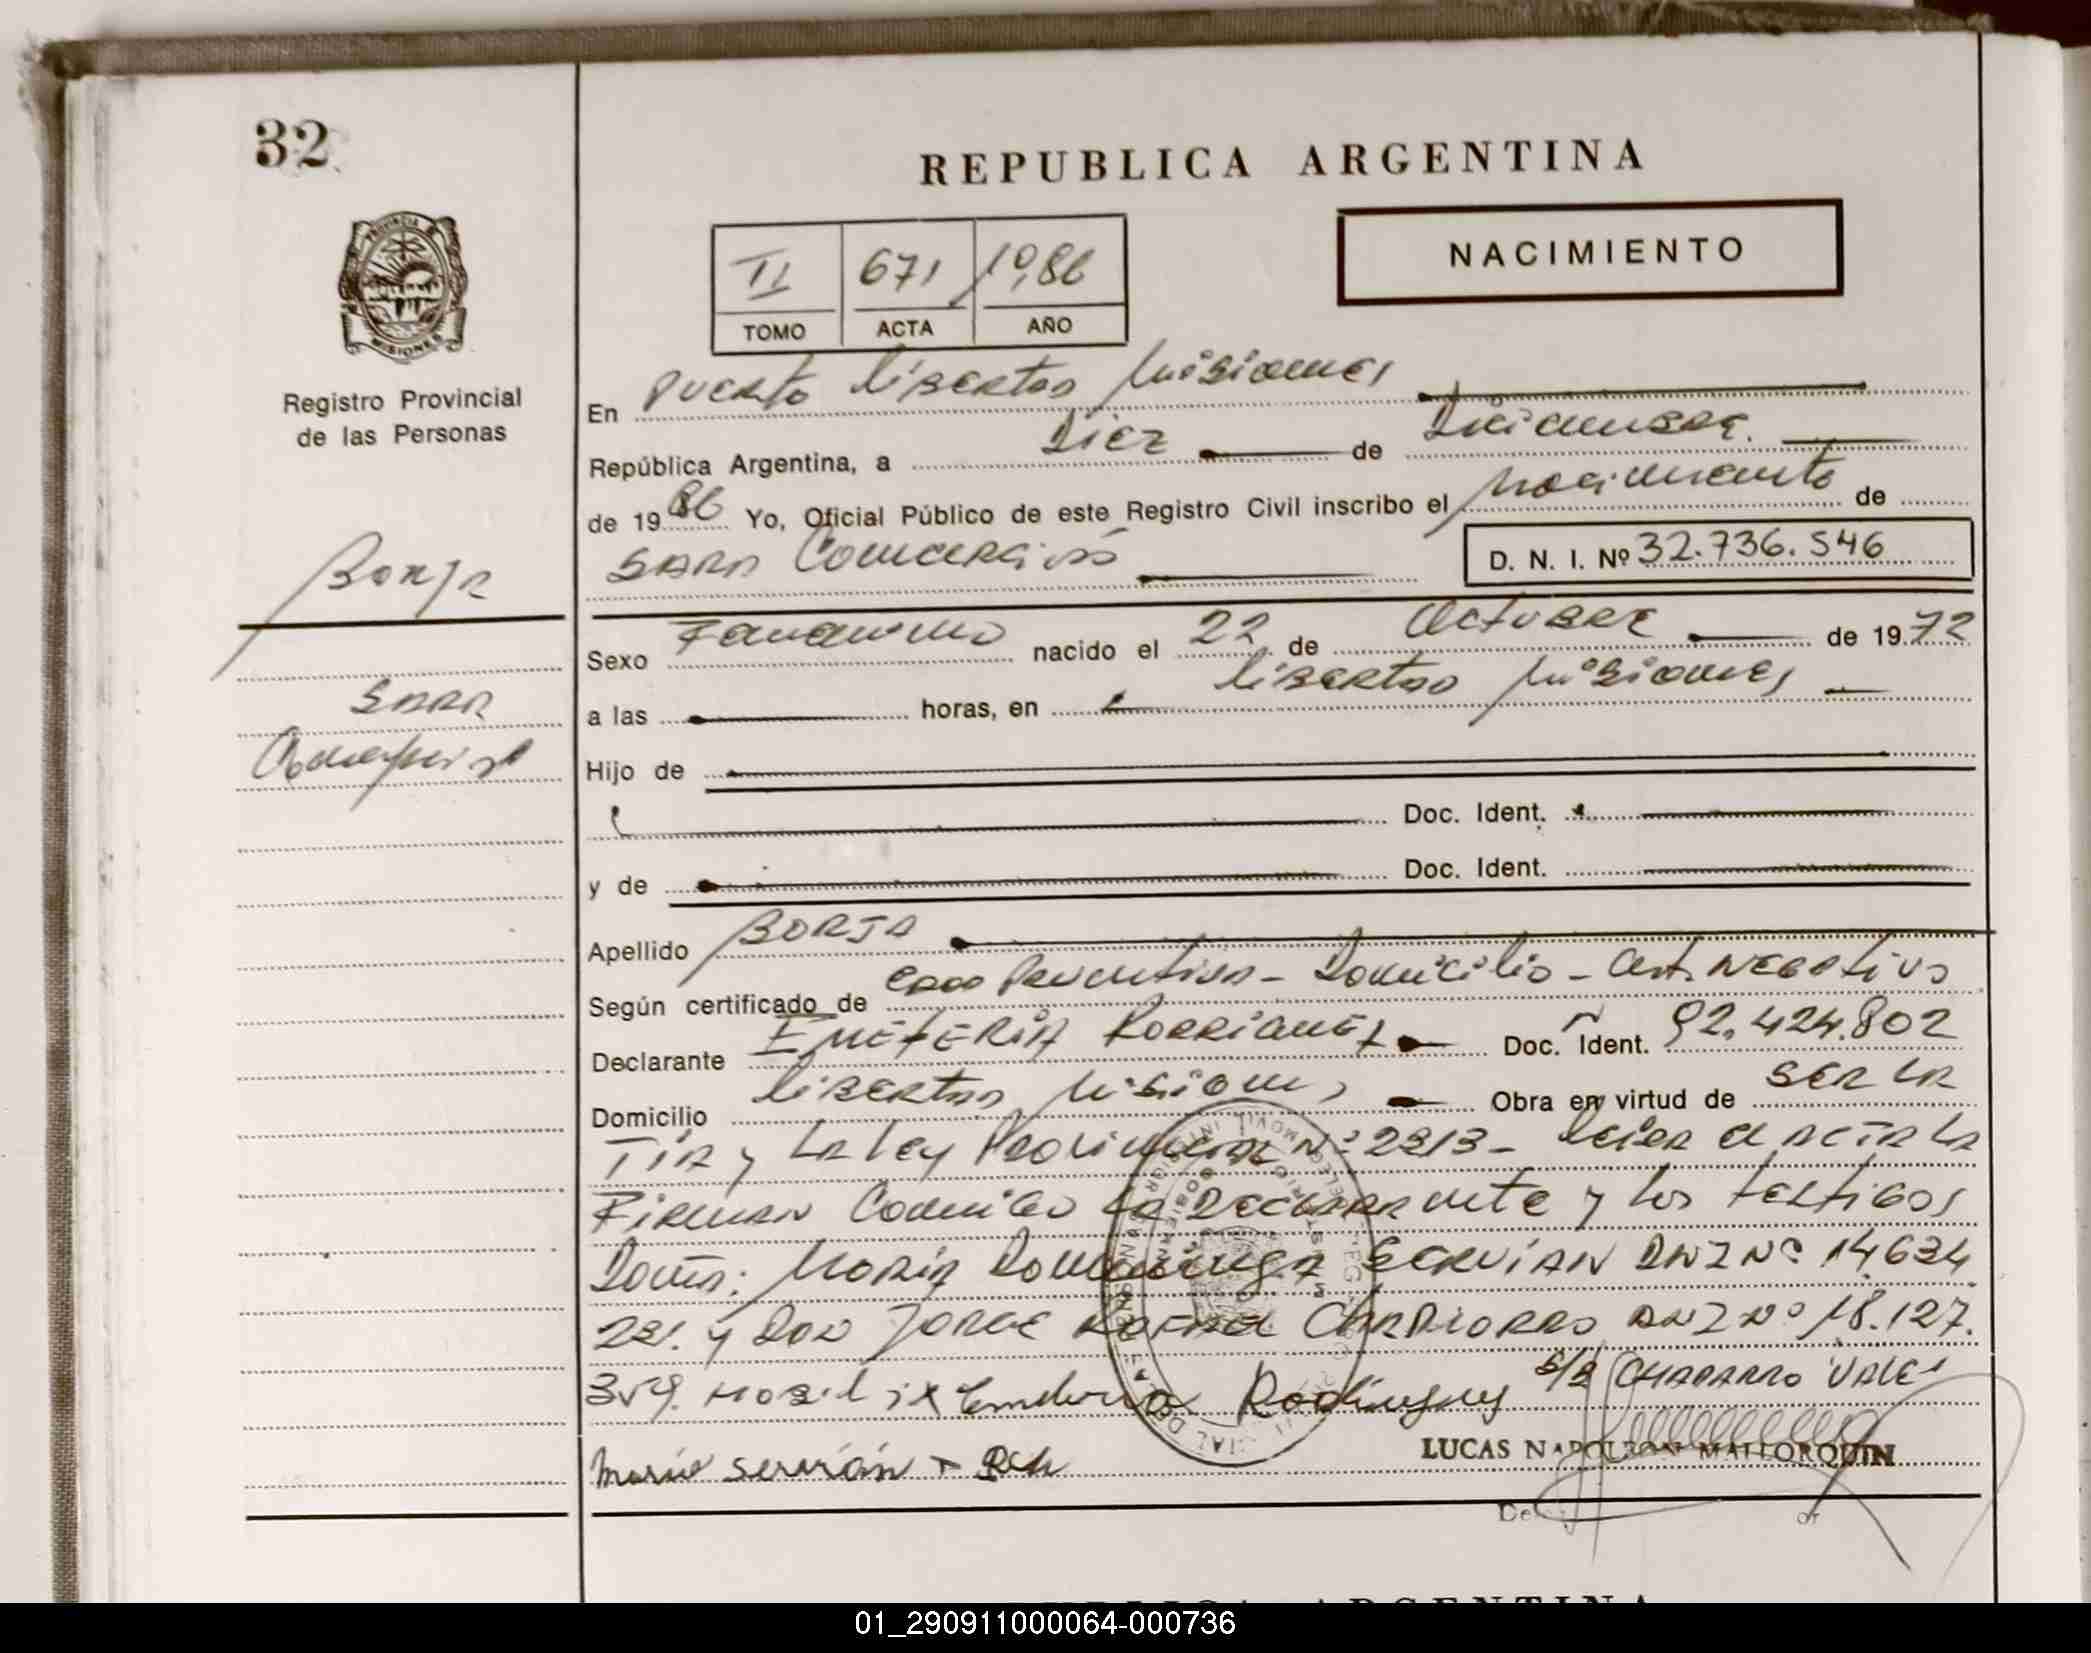 32
REPUBLICA ARGENTINA
NACIMIENTO
II 671 1986
TOMO ACTA AÑO
PROVINCIA DE
MISIONES
Registro Provincial
de las Personas
En Puerto Libertad Misiones
República Argentina, a Diez de Diciembre
de 1986 Yo, Oficial Público de este Registro Civil inscribo el nacimiento de
SARA
D. N. I. Nº 32.736.546
Borja
SARA
Sexo Femenino nacido el 22 de Octubre de 1972
a las horas, en Libertad Misiones
Hijo de
Doc. Ident.
y de Doc. Ident.
Apellido BORJA
Según certificado de Domicilio - Cert. Negativo
Declarante EMETERIA RODRIGUEZ Doc. Ident. 92.424.802
Domicilio Libertad Misiones Obra en virtud de SER LA
TIA y LA Ley Provincial Nº 2213 - el ACTA LA
FIRMAN Conmigo LA DECLARANTE y los testigos
Doña: MARIA Dominga SERVIAN DNI Nº 14.634
221. y DON JORGE RAFAEL DNI Nº 18.127.
359. Rodriguez S/R CHAPARRO VALE
Maria servián
LUCAS NAPOLEON MALLORQUIN
01_290911000064-000736